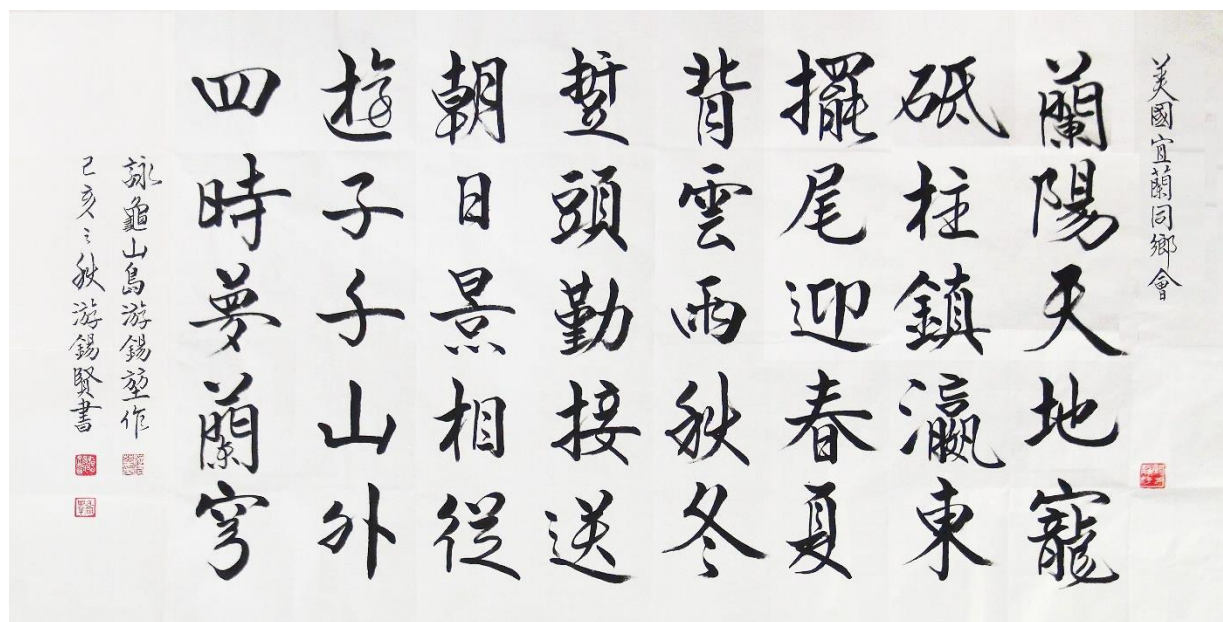 美國宜蘭同鄉會
蘭陽天地寵
砥柱鎮瀛東
擺尾迎春夏
背雲雨秋冬
蹔頭勤接送
朝日景相從
遊子千山外
四時夢蘭穹
詠龜山島游錫堃作
己亥之秋游錫賢書